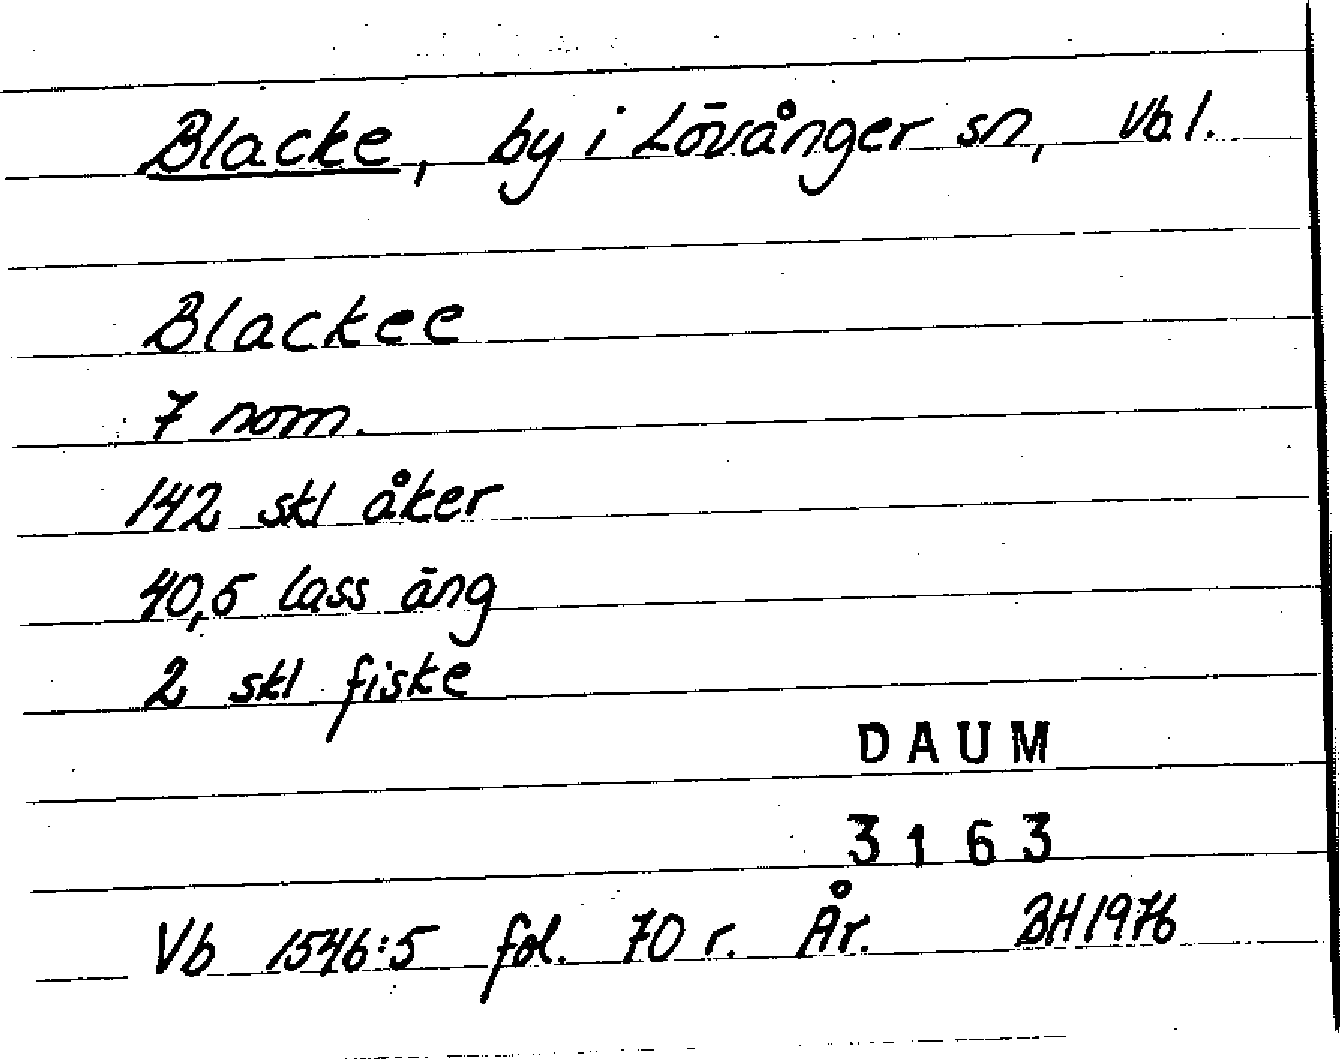 Blacke, by i Lövånger sn, Vb.l.
Blackee
7 nom.
142 skl åker
40,5 lass äng
2 skl fiske
DAUM
3163
Vb 1546:5 fol. 70 r. År. BH1976